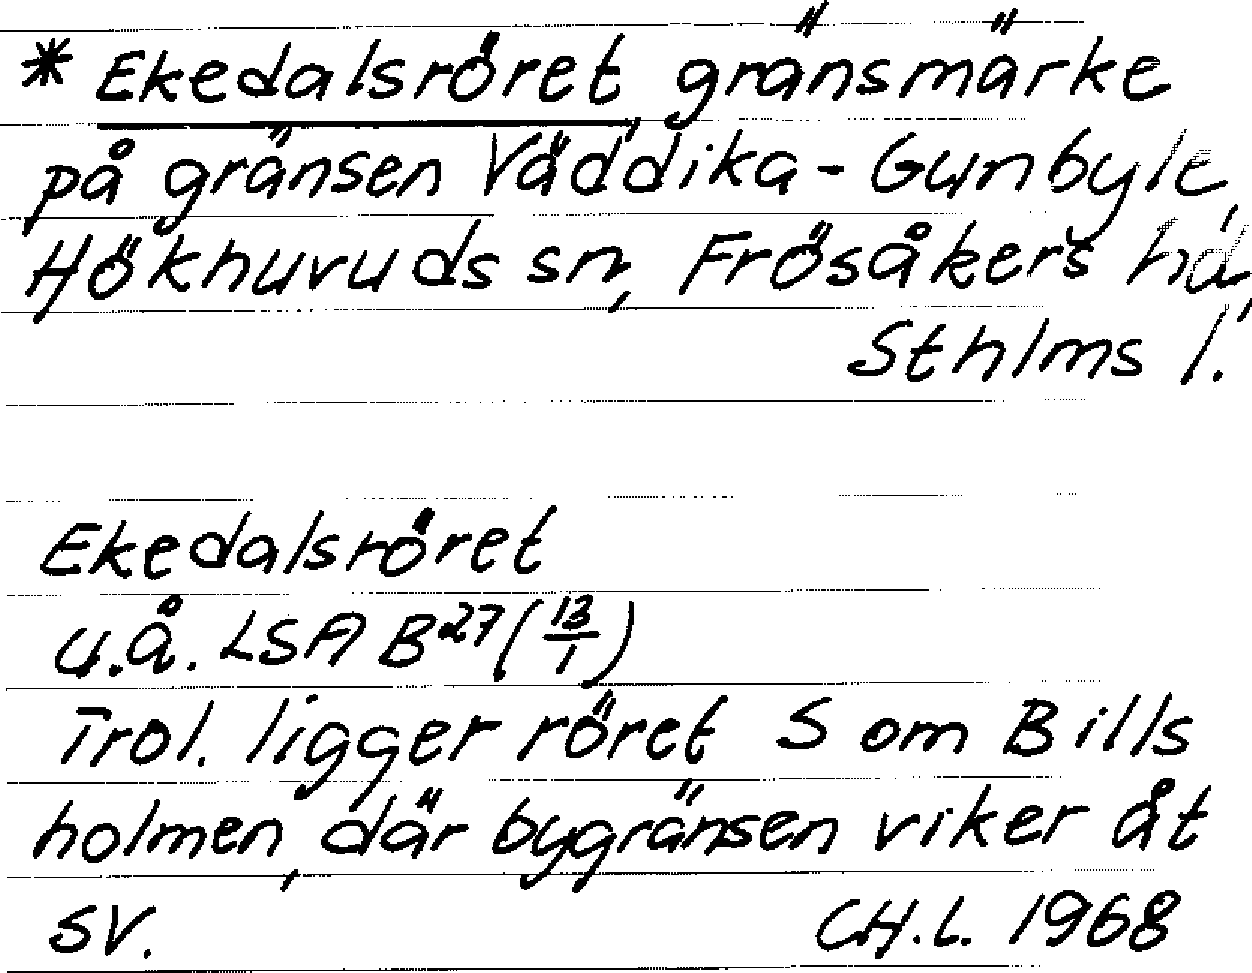 * Ekedalsröret, gränsmärke
på gränsen Väddika - Gunbyle,
Hökhuvuds sn, Frösåkers hd,
Sthlms l.
Ekedalsröret
u.å. LSA B²⁷ (13/1)
Trol. ligger röret S om Bills
holmen, där bygränsen viker åt
SV. CH.L. 1968